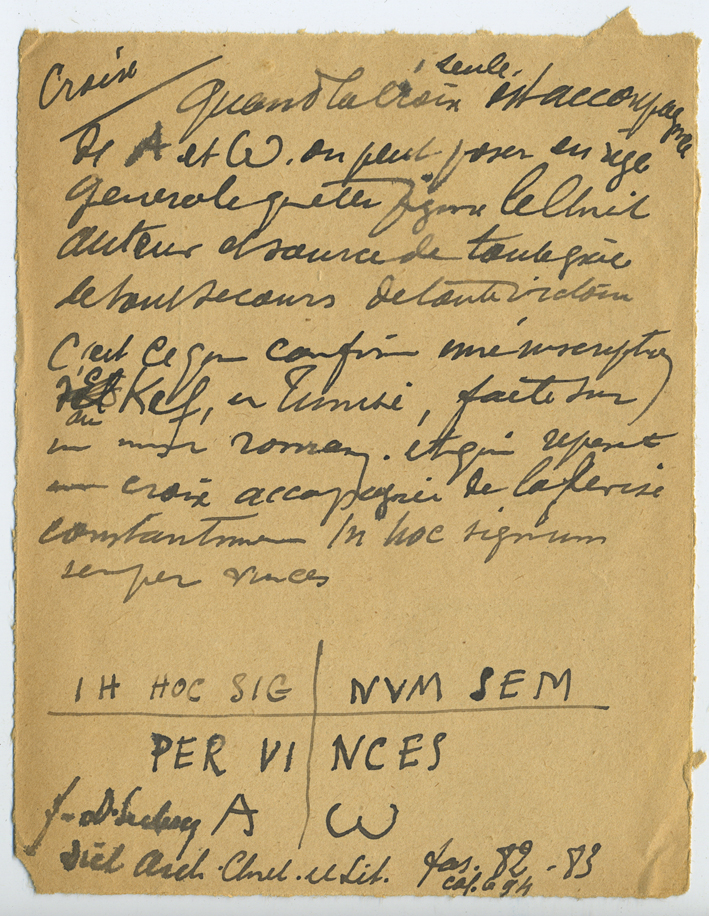 Croix
seule
Quand la croix est accompagnée
de A et ω. on peut poser en règle
generale qu'etes figure le Christ
auteur et source de toute grâce
de tout secours de toute victoire
C'est ce que confirme une inscription
du Kef, en Tunisie, faite sur
un mur romain. et qui represente
une croix accompagnée de la devise
constantinienne In hoc signum
semper vinces
IH HOC SIG NVM SEM
PER VI NCES
A ω
Dict Arch. Chret. et Lit. fas. 82 - 83